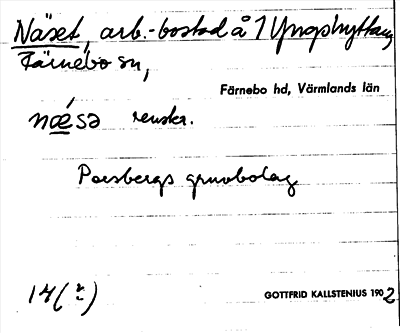 Näset, arb.-bostad å 1 Yngshyttan,
Färnebo sn,
Färnebo hd, Värmlands län
næ´sə renskr.
Persbergs gruvbolag
14( )
GOTTFRID KALLSTENIUS 1902